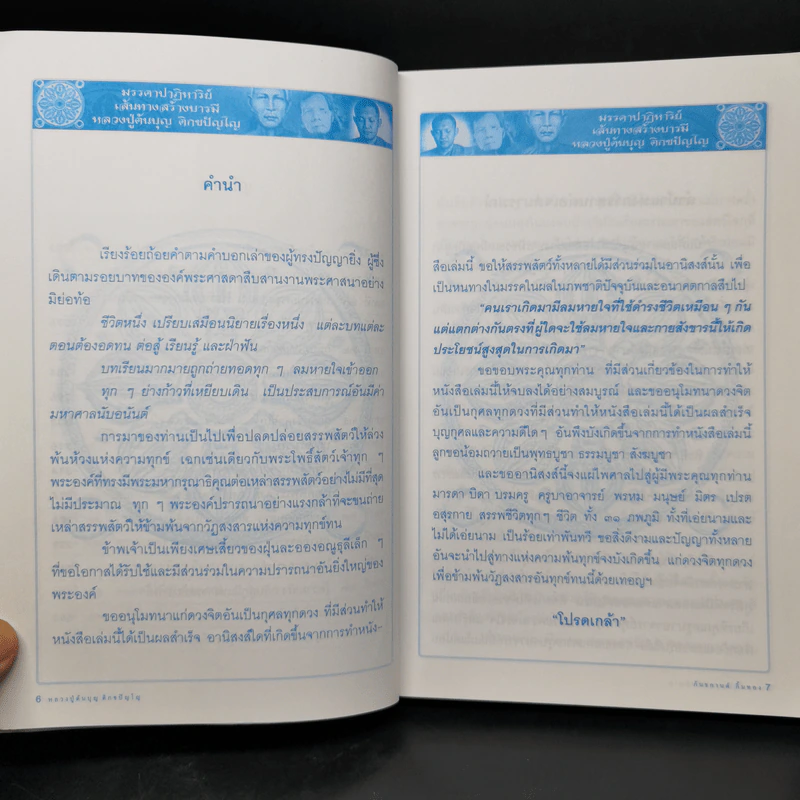 มรรคาปาฏิหาริย์
เส้นทางสร้างบารมี
หลวงปู่ต้นบุญ ติกขปัญโญ
คำนำ
เรียงร้อยถ้อยคำตามคำบอกเล่าของผู้ทรงปัญญายิ่ง ผู้ซึ่ง
เดินตามรอยบาทขององค์พระศาสดาสืบสานงานพระศาสนาอย่าง
มิย่อท้อ
ชีวิตหนึ่ง เปรียบเสมือนนิยายเรื่องหนึ่ง แต่ละบทแต่ละ
ตอนต้องอดทน ต่อสู้ เรียนรู้ และฝ่าฟัน
บทเรียนมากมายถูกถ่ายทอดทุก ๆ ลมหายใจเข้าออก
ทุก ๆ ย่างก้าวที่เหยียบเดิน เป็นประสบการณ์อันมีค่า
มหาศาลนับอนันต์
การมาของท่านเป็นไปเพื่อปลดปล่อยสรรพสัตว์ให้ล่วง
พ้นห้วงแห่งความทุกข์ เฉกเช่นเดียวกับพระโพธิ์สัตว์เจ้าทุก ๆ
พระองค์ที่ทรงมีพระมหากรุณาธิคุณต่อเหล่าสรรพสัตว์อย่างไม่มีที่สุด
ไม่มีประมาณ ทุก ๆ พระองค์ปรารถนาอย่างแรงกล้าที่จะขนถ่าย
เหล่าสรรพสัตว์ให้ข้ามพ้นจากวัฏสงสารแห่งความทุกข์ทน
ข้าพเจ้าเป็นเพียงเศษเสี้ยวของฝุ่นละอองอณูธุลีเล็ก ๆ
ที่ขอโอกาสได้รับใช้และมีส่วนร่วมในความปรารถนาอันยิ่งใหญ่ของ
พระองค์
ขออนุโมทนาแก่ดวงจิตอันเป็นกุศลทุกดวง ที่มีส่วนทำให้
หนังสือเล่มนี้ได้เป็นผลสำเร็จ อานิสงส์ใดที่เกิดขึ้นจากการทำหนัง-
6 หลวงปู่ต้นบุญ ติกขปัญโญ
มรรคาปาฏิหาริย์
เส้นทางสร้างบารมี
หลวงปู่ต้นบุญ ติกขปัญโญ
สือเล่มนี้ ขอให้สรรพสัตว์ทั้งหลายได้มีส่วนร่วมในอานิสงส์นั้น เพื่อ
เป็นหนทางในมรรคในผลในภพชาติปัจจุบันและอนาคตกาลสืบไป
"คนเราเกิดมามีลมหายใจที่ใช้ดำรงชีวิตเหมือน ๆ กัน
แต่แตกต่างกันตรงที่ผู้ใดจะใช้ลมหายใจและกายสังขารนี้ให้เกิด
ประโยชน์สูงสุดในการเกิดมา"
ขอขอบพระคุณทุกท่าน ที่มีส่วนเกี่ยวข้องในการทำให้
หนังสือเล่มนี้ให้จบลงได้อย่างสมบูรณ์ และขออนุโมทนาดวงจิต
อันเป็นกุศลทุกดวงที่มีส่วนทำให้หนังสือเล่มนี้ได้เป็นผลสำเร็จ
บุญกุศลและความดีใด ๆ อันพึงบังเกิดขึ้นจากการทำหนังสือเล่มนี้
ลูกขอน้อมถวายเป็นพุทธบูชา ธรรมบูชา สังฆบูชา
และขออานิสงส์นี้จงแผ่ไพศาลไปสู่ผู้มีพระคุณทุกท่าน
มารดา บิดา บรมครู ครูบาอาจารย์ พรหม มนุษย์ มิตร เปรต
อสุรกาย สรรพชีวิตทุกๆ ชีวิต ทั้ง ๓๑ ภพภูมิ ทั้งที่เอ่ยนามและ
ไม่ได้เอ่ยนาม เป็นร้อยเท่าพันทวี ขอสิ่งดีงามและปัญญาทั้งหลาย
อันจะนำไปสู่ทางแห่งความพ้นทุกข์จงบังเกิดขึ้น แก่ดวงจิตทุกดวง
เพื่อข้ามพ้นวัฏสงสารอันทุกข์ทนนี้ด้วยเทอญฯ
"โปรดเกล้า"
7